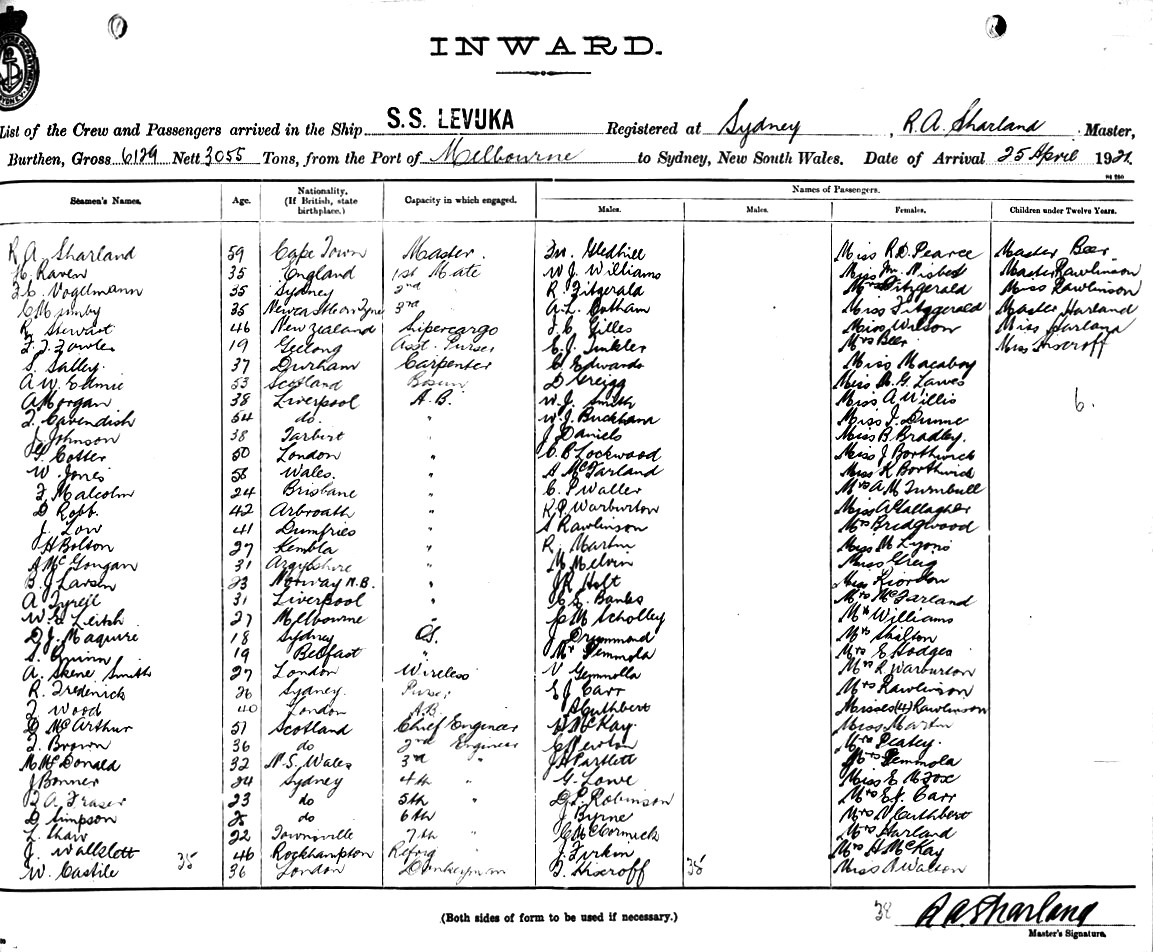 INWARD.
List of the Crew and Passengers arrived in the Ship S.S. LEVUKA Registered at Sydney, R.A. Sharland Master,
Burthen, Gross 6129 Nett 3055 Tons, from the Port of Melbourne to Sydney, New South Wales. Date of Arrival 25 April 1921.
Seamen's Names. Age. Nationality. (If British, state birthplace.) Capacity in which engaged. Names of Passengers.
Males. Males. Females. Children under Twelve Years.
R A Sharland 59 Cape Town Master. Gledhill Miss R.D. Pearce Master Beer
H. Raven 35 England 1st Mate W J. Williams Miss Nisbet Master Rawlinson
Voglmann 35 Sydney 2nd R Fitzgerald Mrs Fitzgerald Miss Rawlinson
35 Newcastle on Tyne 3rd A.L. Miss Fitzgerald Master Harland
R Stewart 46 New Zealand Supercargo Gilles Miss Wilson Miss Harland
F. J. Fowler 19 Geelong Asst. Purser E. J. Tinkler Mrs Beer Miss
S. Salley. 37 Durham Carpenter C Edwards Miss Macaboy
A W. Edmie 53 Scotland Bosun D Greigg Miss G. Lawes
A Morgan 38 Liverpool A.B. W. J. Smith Miss A Willis 6.
Cavendish 54 do. " W. J. Buckhana Miss J. Dunne
J Johnson 38 Tarbert " J Daniels Miss B Bradley.
Cotter 50 London " C. B Lockwood Miss J Borthwick
W. Jones 58 Wales. " A McFarland Miss K Borthwick
F Malcolm 24 Brisbane " C. P Waller Mrs A M Turnbull
D Robb. 42 Arbroath " R P Warburton Miss A Gallagher
J. Low 41 Dumfries " S Rawlinson Mrs Bridgwood
H Bolton 27 Kembla " R. Martin Miss M Lyons
A McGougan 31 Argyshire " M Melvin Miss Greig
B. J Larsen 23 Norway N.B. " J R Holt Miss Riordon
A Tyrell 31 Liverpool " C. E. Banks Mrs McFarland
W. G Leitch 27 Melbourne M Scholley Mrs Williams
D J. Maguire 18 Sydney O.S. J Drummond Mrs Shilton
S. Quinn 19 Belfast " Mr Pemmola Mrs E Hodges
A. Skene Smith 27 London Wireless V Gemmolla Mrs R Warburton
R. Frederick 26 Sydney. Purser E J Carr Mrs Rawlinson
Wood 40 London A.B. A Cuthbert Misses (4) Rawlinson
D McArthur 51 Scotland Chief Engineer H McKay. Miss Martin
Brown 36 do 2nd Engineer C Newton Mrs Peatey.
M McDonald 32 N.S. Wales 3rd " J H Partlett Mrs Pemmola
J Bonner 24 Sydney 4th " G. Lowe Miss E M Fox
A. Fraser 23 do 5th " Robinson Mrs E J. Carr
D Simpson do 6th J Byrne Mrs A Cuthbert
L. Shaw 22 Townsville 7th " C McCormick Mrs Harland
J. Wallslett 35 46 Rockhampton Refrig " J. Firkin Mrs H McKay
W. Castile 36 London Donkeyman 35 Miss A Watson
(Both sides of form to be used if necessary.) 38 R A Sharland
Master's Signature.